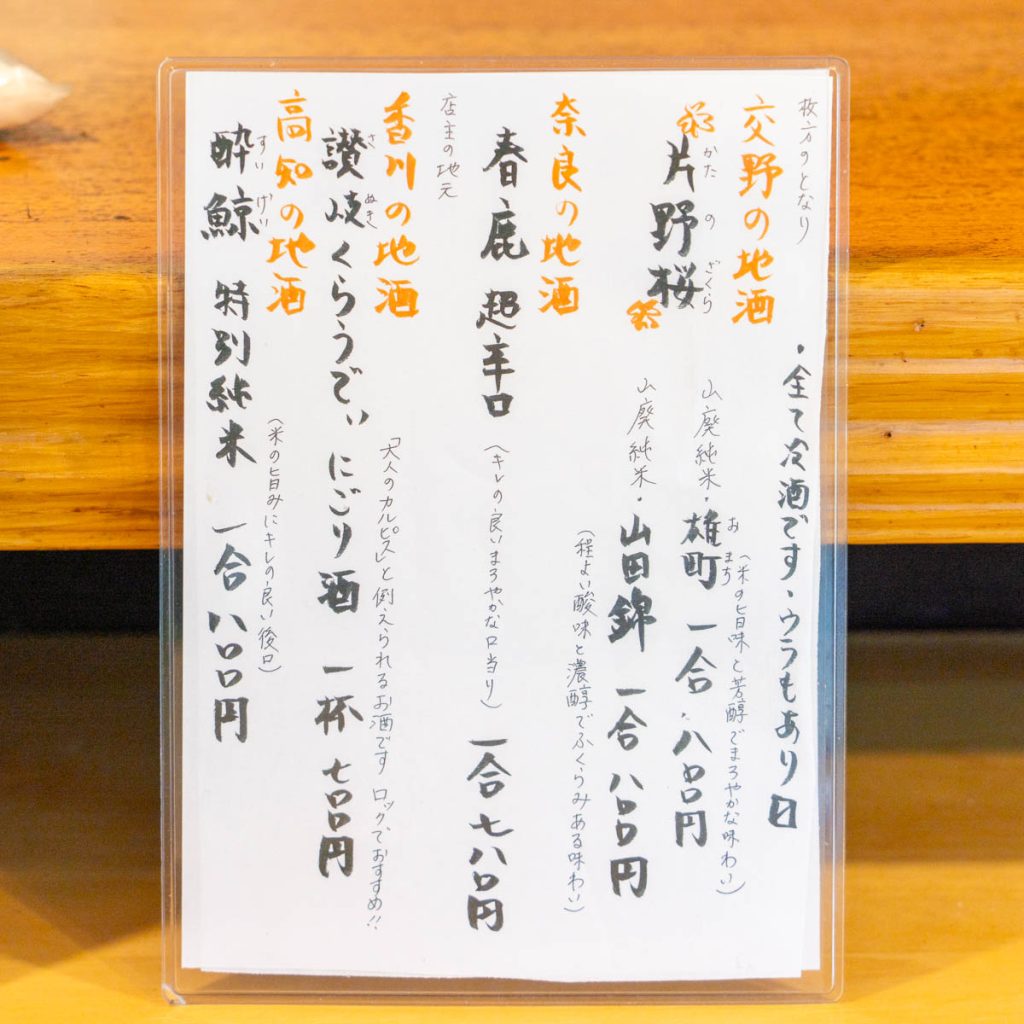 ・全て冷酒です、ウラもあり
枚方のとなり
交野の地酒
片野桜
かたのざくら
山廃純米・雄町 一合 八〇〇円
おまち
(米の旨味と芳醇でまろやかな味わい)
山廃純米・山田錦 一合 八〇〇円
(程よい酸味と濃醇でふくらみある味わい)
奈良の地酒
春鹿 超辛口 一合 七八〇円
(キレの良いまろやかな口当り)
店主の地元
香川の地酒
讃岐くらうでぃ にごり酒 一杯 七〇〇円
さぬき
「大人のカルピス」と例えられるお酒です ロックでおすすめ!!
高知の地酒
酔鯨 特別純米 一合 八〇〇円
すいげい
(米の旨みにキレの良い後口)